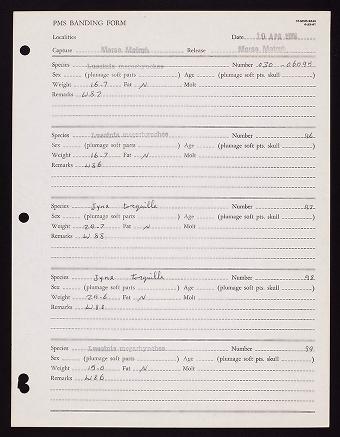 PMS BANDING FORM
Localities Date 10 APR
Capture Mersa Matruh Release Mersa Matruh
Species Luscinia megarhynchos Number 030-06095
Sex (plumage soft parts ) Age (plumage soft pts. skull )
Weight 16.7 Fat N Molt
Remarks W82
Species Luscinia megarhynchos Number 96
Sex (plumage soft parts ) Age (plumage soft pts. skull )
Weight 16.7 Fat N Molt
Remarks W86
Species Jynx torquilla Number 97
Sex (plumage soft parts ) Age (plumage soft pts. skull )
Weight 29.7 Fat N Molt
Remarks W 88
Species Jynx torquilla Number 98
Sex (plumage soft parts ) Age (plumage soft pts. skull )
Weight 29.6 Fat N Molt
Remarks W88
Species Luscinia megarhynchos Number 99
Sex (plumage soft parts ) Age (plumage soft pts. skull )
Weight 19.0 Fat N Molt
Remarks W86